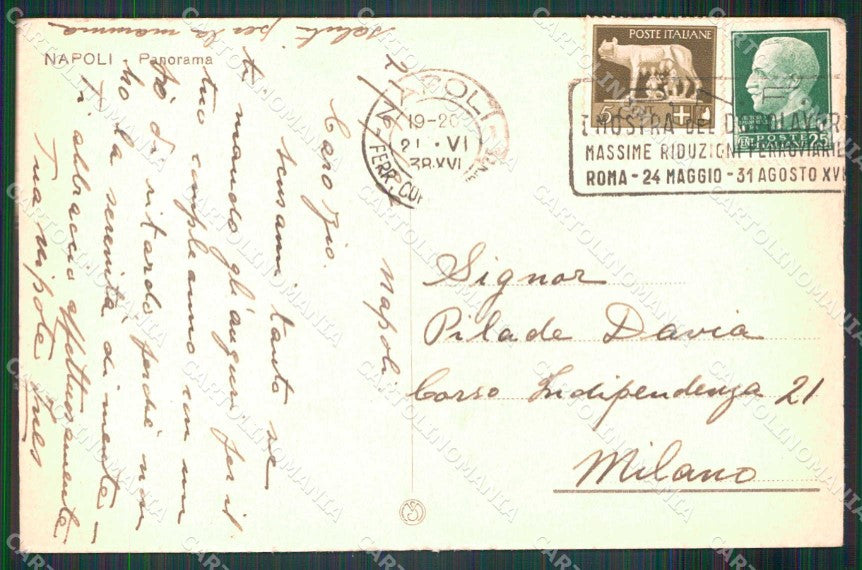 NAPOLI - Panorama
saluti per la mamma
21/6 - Napoli
Caro zio.
scusami tanto se
ti mando gli auguri per il
tuo compleanno con un
pò di ritardo perchè non
ho la serenità di mente -
Ti abbraccio affettuosamente
Tua nipote Ines
NAPOLI
19-20
21 VI
38 XVI
FERR.
POSTE ITALIANE
5
POSTE
25
I MOSTRA DEL DOPOLAVORO
MASSIME RIDUZIONI FERROVIARIE
ROMA - 24 MAGGIO - 31 AGOSTO XVI
Signor
Pilade Davia
Corso Indipendenza 21
Milano
CARTOLINOMANIA